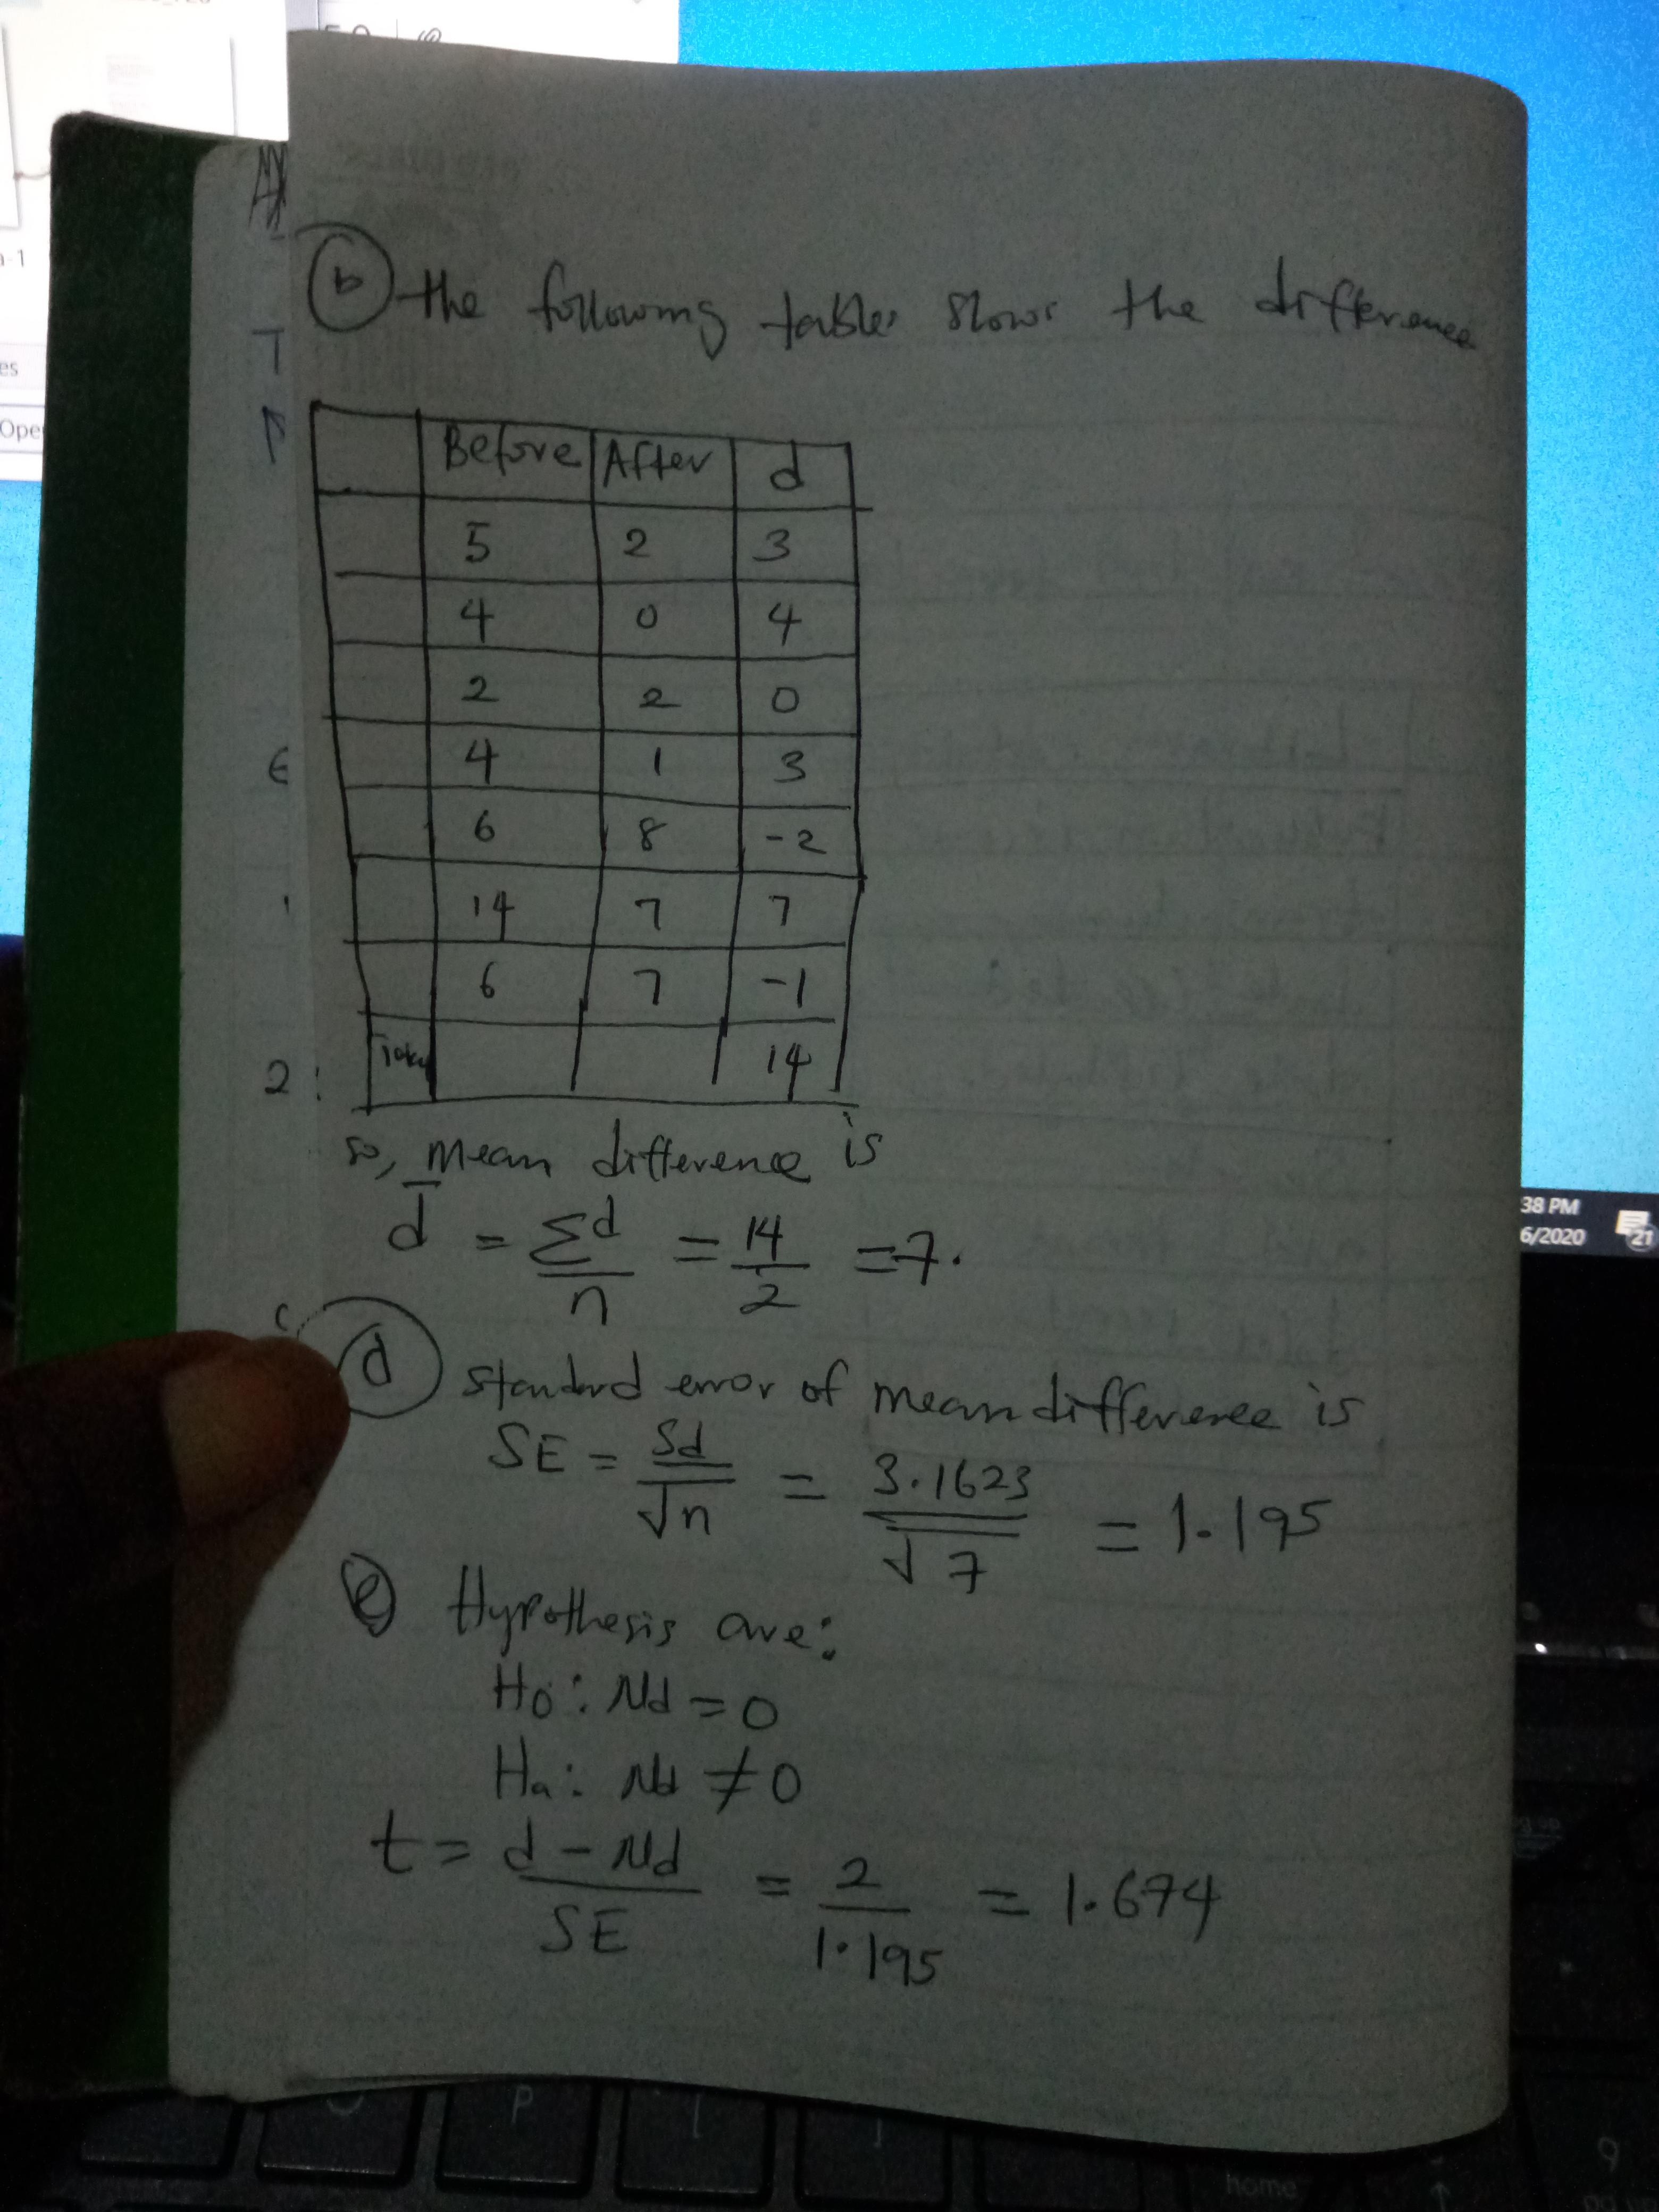 b the following table shows the difference
Before After d
5 2 3
4 0 4
2 2 0
4 1 3
6 8 -2
14 7 7
6 7 -1
Total 14
so, mean difference is
d̄ = Σd/n = 14/2 = 7.
d standard error of mean difference is
SE = Sd/√n = 3.1623/√7 = 1.195
e Hypothesis are:
Ho: Md = 0
Ha: Md ≠ 0
t = d - Md/SE = 2/1.195 = 1.674
38 PM
6/2020
21
Ope
es
-1
T
E
2:
P
[
]
home
9